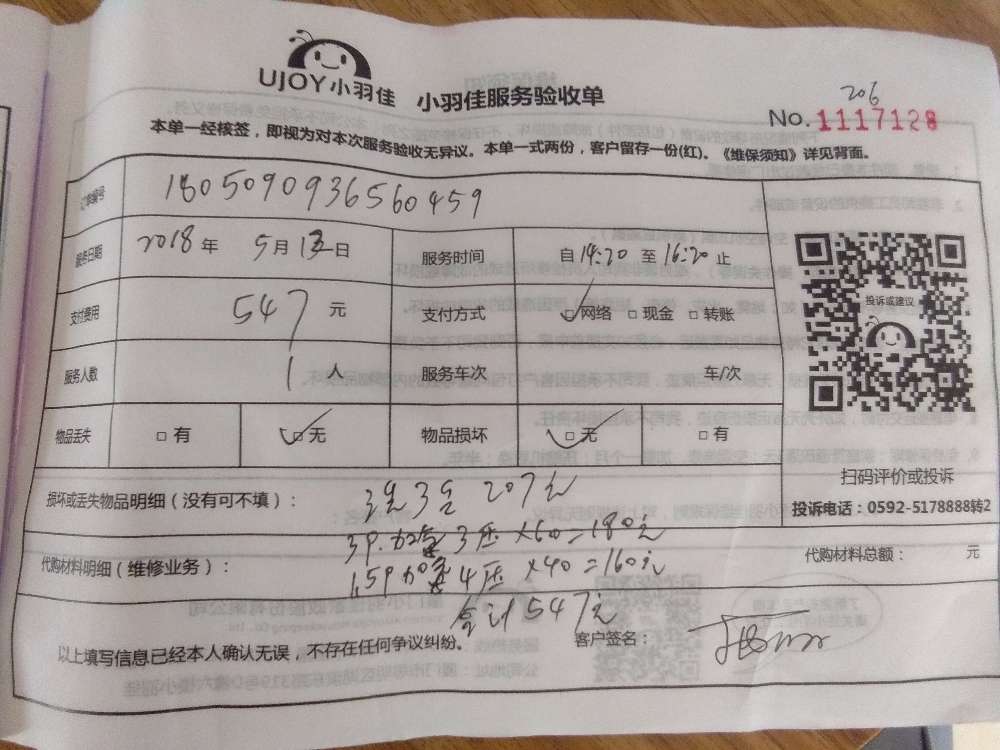 UJOY小羽佳 小羽佳服务验收单
206
No. 1117128
本单一经核签，即视为对本次服务验收无异议。本单一式两份，客户留存一份(红)。《维保须知》详见背面。
订单编号 180509093656 0459
服务日期 2018年 5月13日 服务时间 自14:20 至 16:20止
支付费用 547 元 支付方式 ☑网络 □现金 □转账
投诉或建议
服务人数 1 人 服务车次 车/次
物品丢失 □有 ☑无 物品损坏 ☑无 □有
扫码评价或投诉
损坏或丢失物品明细（没有可不填）： 3台 207元
投诉电话：0592-5178888转2
3P.加氟 3压×60=180元
代购材料明细（维修业务）： 1.5P加氟 4压×40=160元
代购材料总额： 元
合计547元
以上填写信息已经本人确认无误，不存在任何争议纠纷。 客户签名：